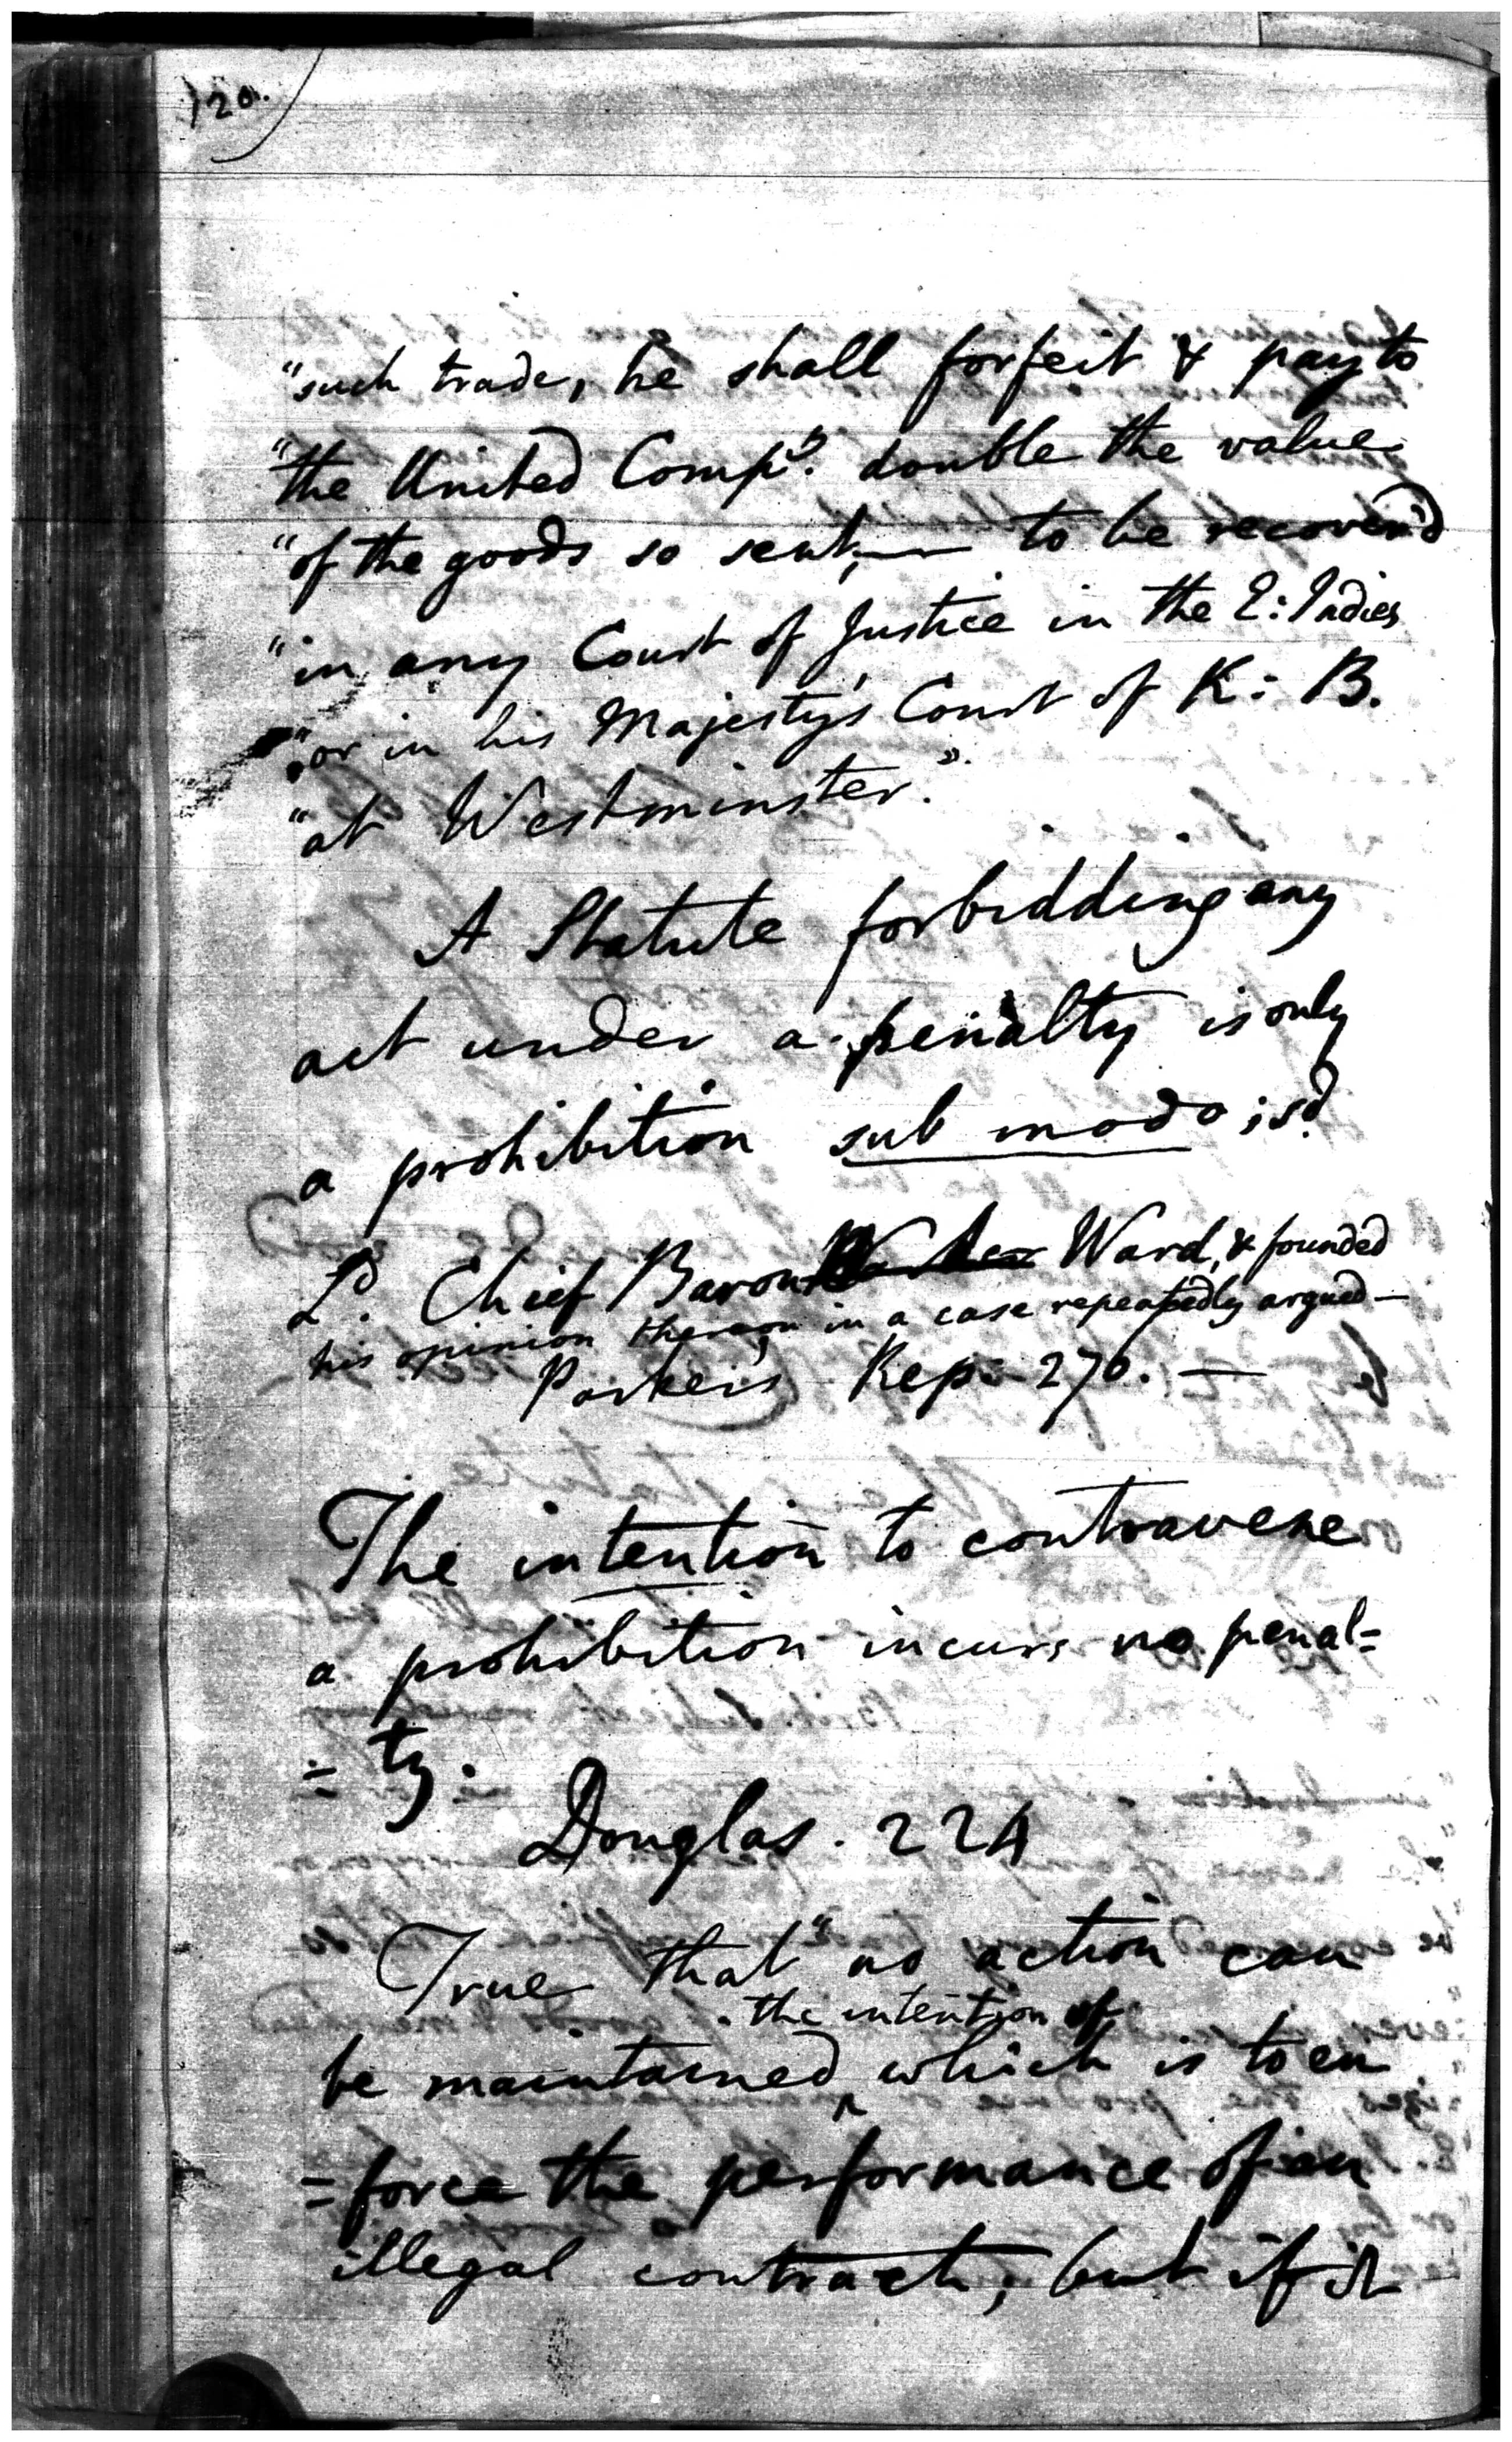 120.
"such trade, he shall forfeit & pay to
"the United Compy. double the value
"of the goods so sent, — to be recover'd
"in any Court of Justice in the E: Indies
"or in his Majesty's Court of K: B.
"at Westminster."
A Statute forbidding any
act under a penalty is only
a prohibition sub modo; sd.
Ld. Chief Baron Ward, & founded
his opinion thereon in a case repeatedly argued —
Parker's Rep: 270. —
The intention to contravene
a prohibition incurs no penal=
=ty.
Douglas. 224
True that "no action can
the intention of
be maintained ^ which is to en
=force the performance of an
illegal contract; but if it